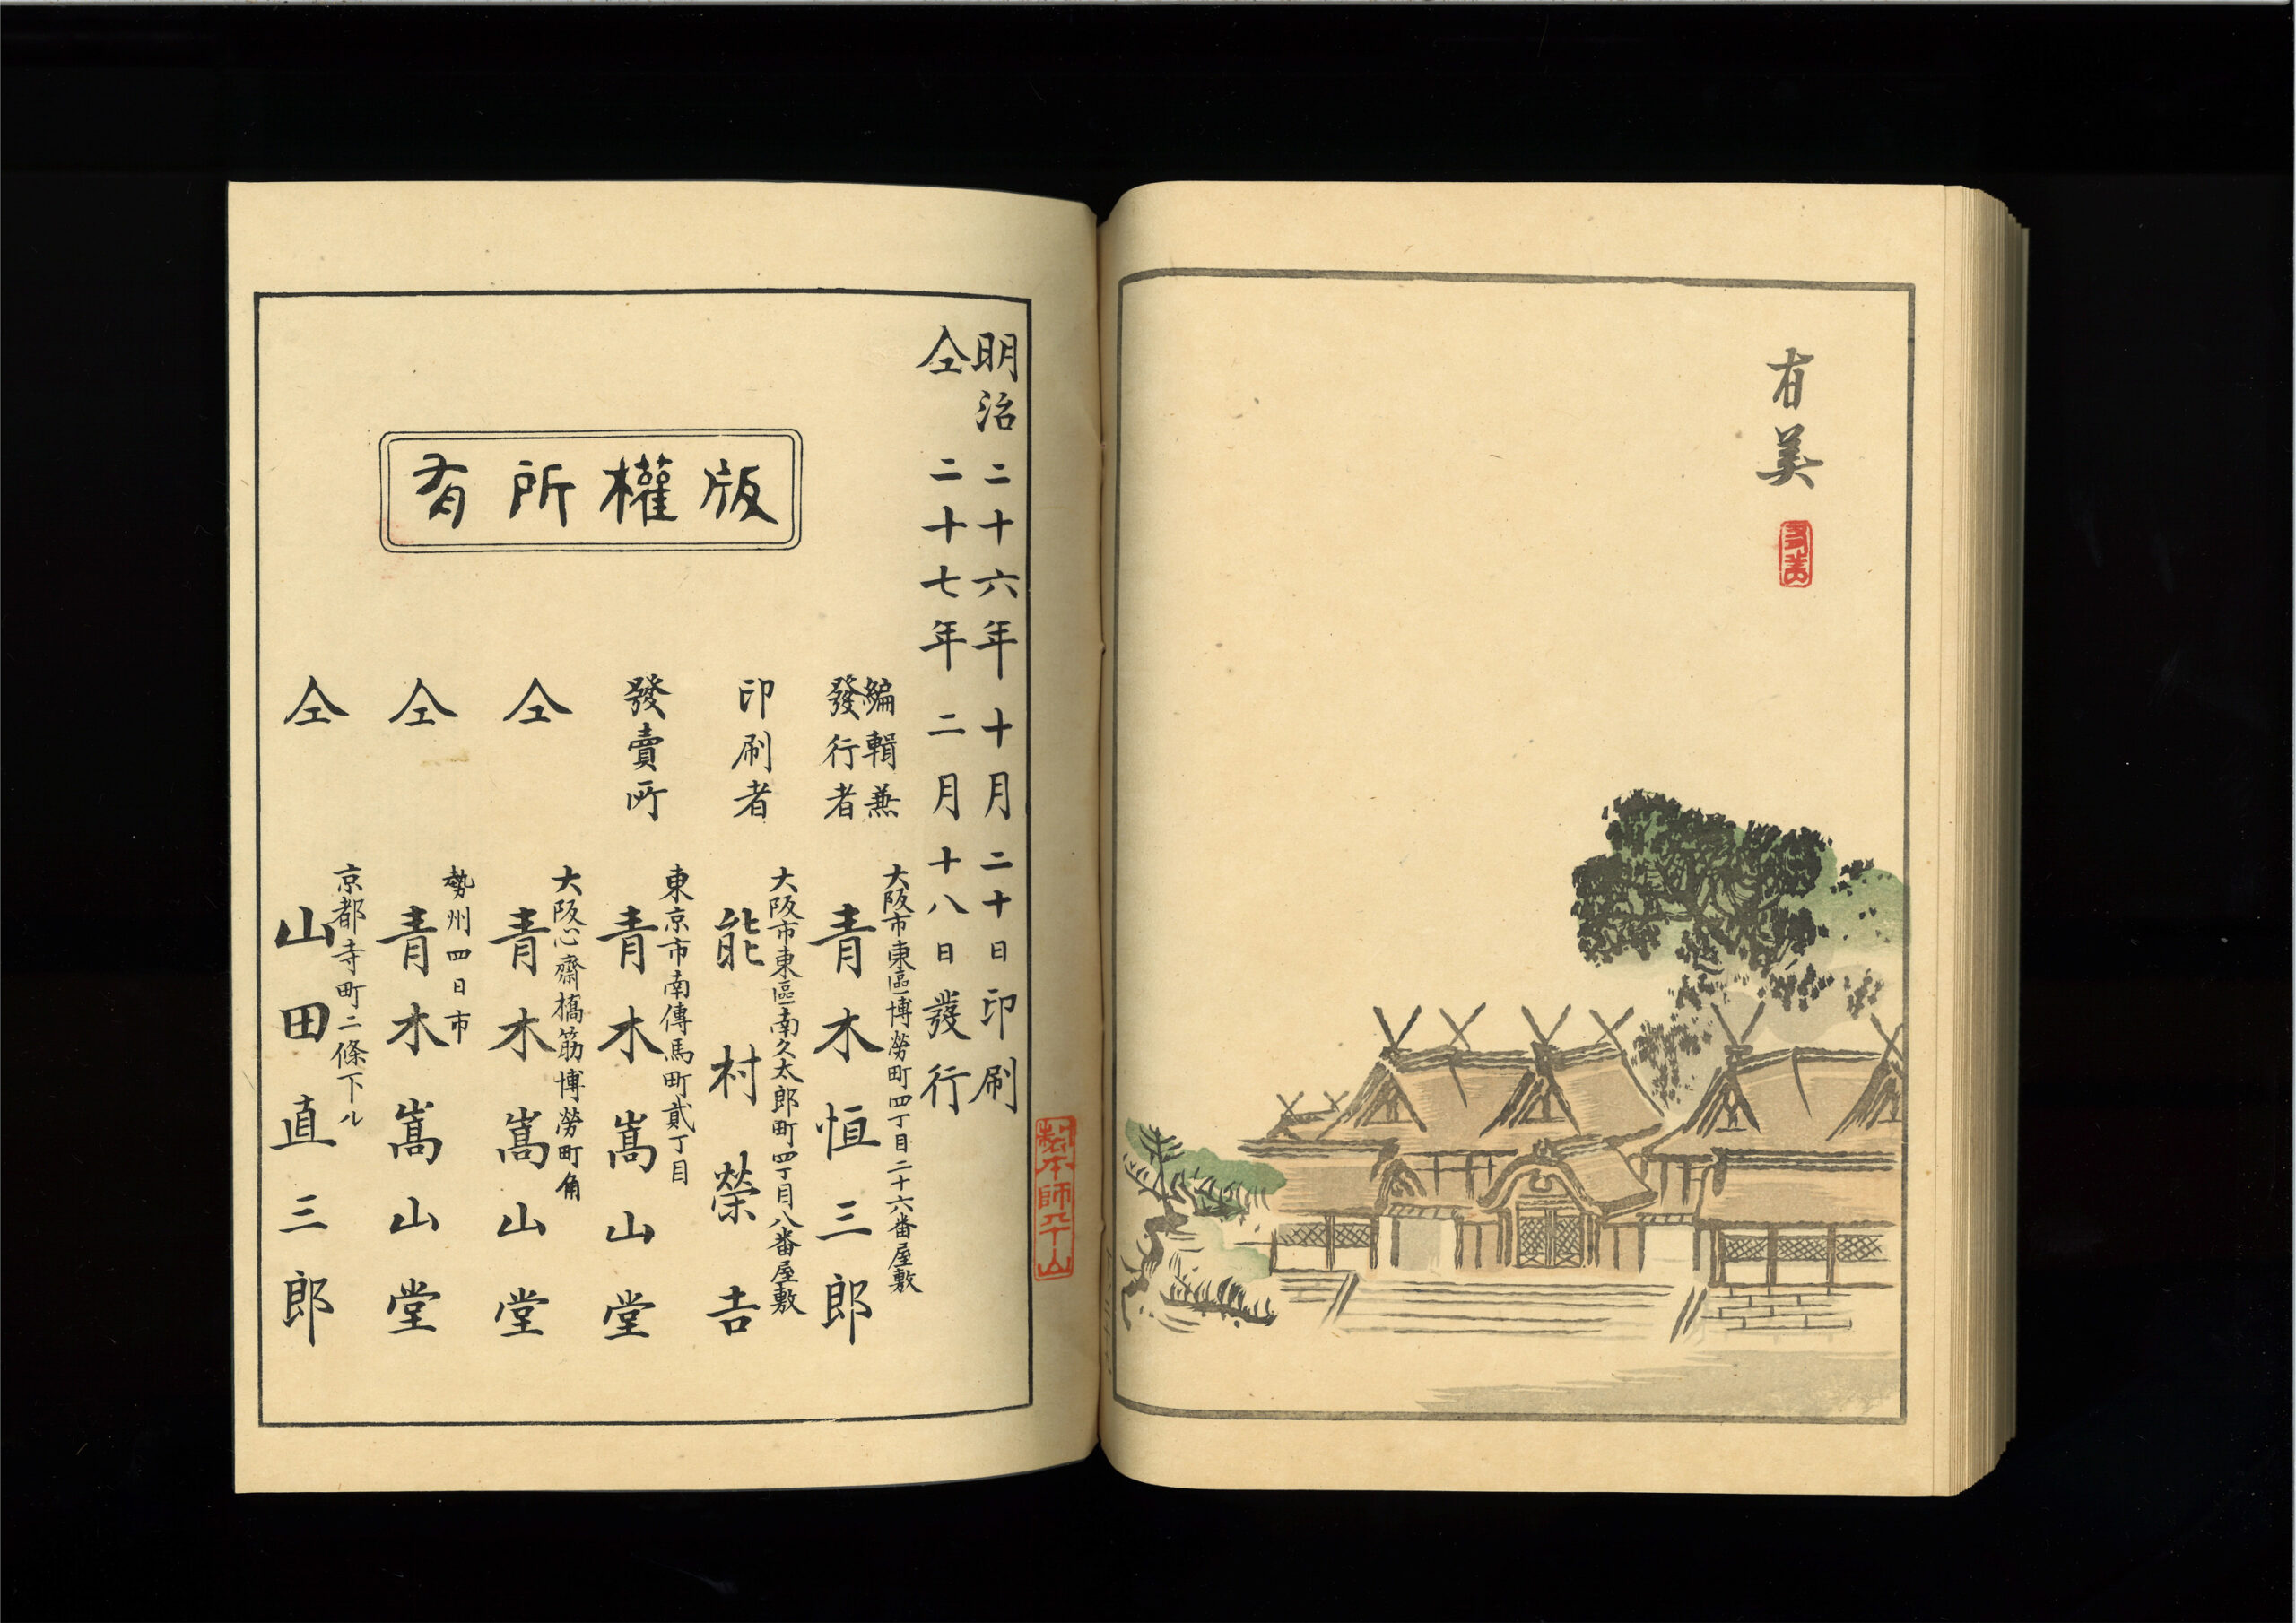 有美
明治二十六年十月二十日印刷
仝二十七年二月十八日發行
版權所有
編輯兼
發行者
大阪市東區博勞町四丁目二十六番屋敷
青木恒三郎
印刷者
大阪市東區南久太郎町四丁目八番屋敷
能村榮吉
發賣所
東京市南傳馬町貳丁目
青木嵩山堂
仝
大阪心齋橋筋博勞町角
青木嵩山堂
仝
勢州四日市
青木嵩山堂
仝
京都寺町二條下ル
山田直三郎